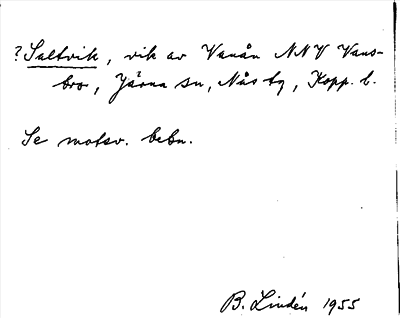 ? Saltvik, vik av Vanån NNV Vans-
bro, Järna sn, Nås tg, Kopp. l.
Se motsv. bebn.
B. Lindén 1955